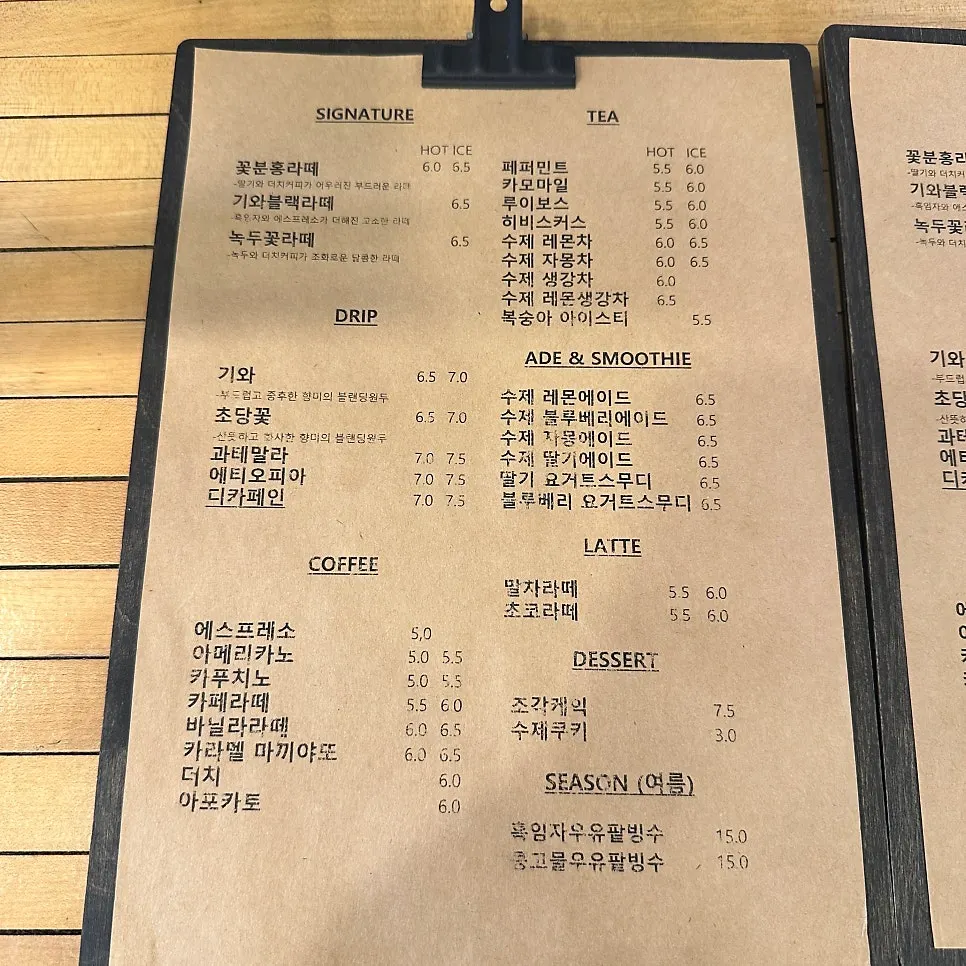 SIGNATURE
HOT ICE
꽃분홍라떼 6.0 6.5
-딸기와 더치커피가 어우러진 부드러운 라떼
기와블랙라떼 6.5
-흑임자와 에스프레소가 더해진 고소한 라떼
녹두꽃라떼 6.5
-녹두와 더치커피가 조화로운 달콤한 라떼
DRIP
기와 6.5 7.0
-부드럽고 중후한 향미의 블랜딩원두
초당꽃 6.5 7.0
-산뜻하고 화사한 향미의 블랜딩원두
과테말라 7.0 7.5
에티오피아 7.0 7.5
디카페인 7.0 7.5
COFFEE
에스프레소 5,0
아메리카노 5.0 5.5
카푸치노 5.0 5.5
카페라떼 5.5 6.0
바닐라라떼 6.0 6.5
카라멜 마끼야또 6.0 6.5
더치 6.0
아포카토 6.0
TEA
HOT ICE
페퍼민트 5.5 6.0
카모마일 5.5 6.0
루이보스 5.5 6.0
히비스커스 5.5 6.0
수제 레몬차 6.0 6.5
수제 자몽차 6.0 6.5
수제 생강차 6.0
수제 레몬생강차 6.5
복숭아 아이스티 5.5
ADE & SMOOTHIE
수제 레몬에이드 6.5
수제 블루베리에이드 6.5
수제 자몽에이드 6.5
수제 딸기에이드 6.5
딸기 요거트스무디 6.5
블루베리 요거트스무디 6.5
LATTE
말차라떼 5.5 6.0
초코라떼 5.5 6.0
DESSERT
조각케익 7.5
수제쿠키 3.0
SEASON (여름)
흑임자우유팥빙수 15.0
콩고물우유팥빙수 15.0
꽃분홍라
-딸기와 더치커
기와블
-흑임자와 에스
녹두꽃
-녹두와 더치
기와
-부드럽
초당
-산뜻하
과테
에티
디카